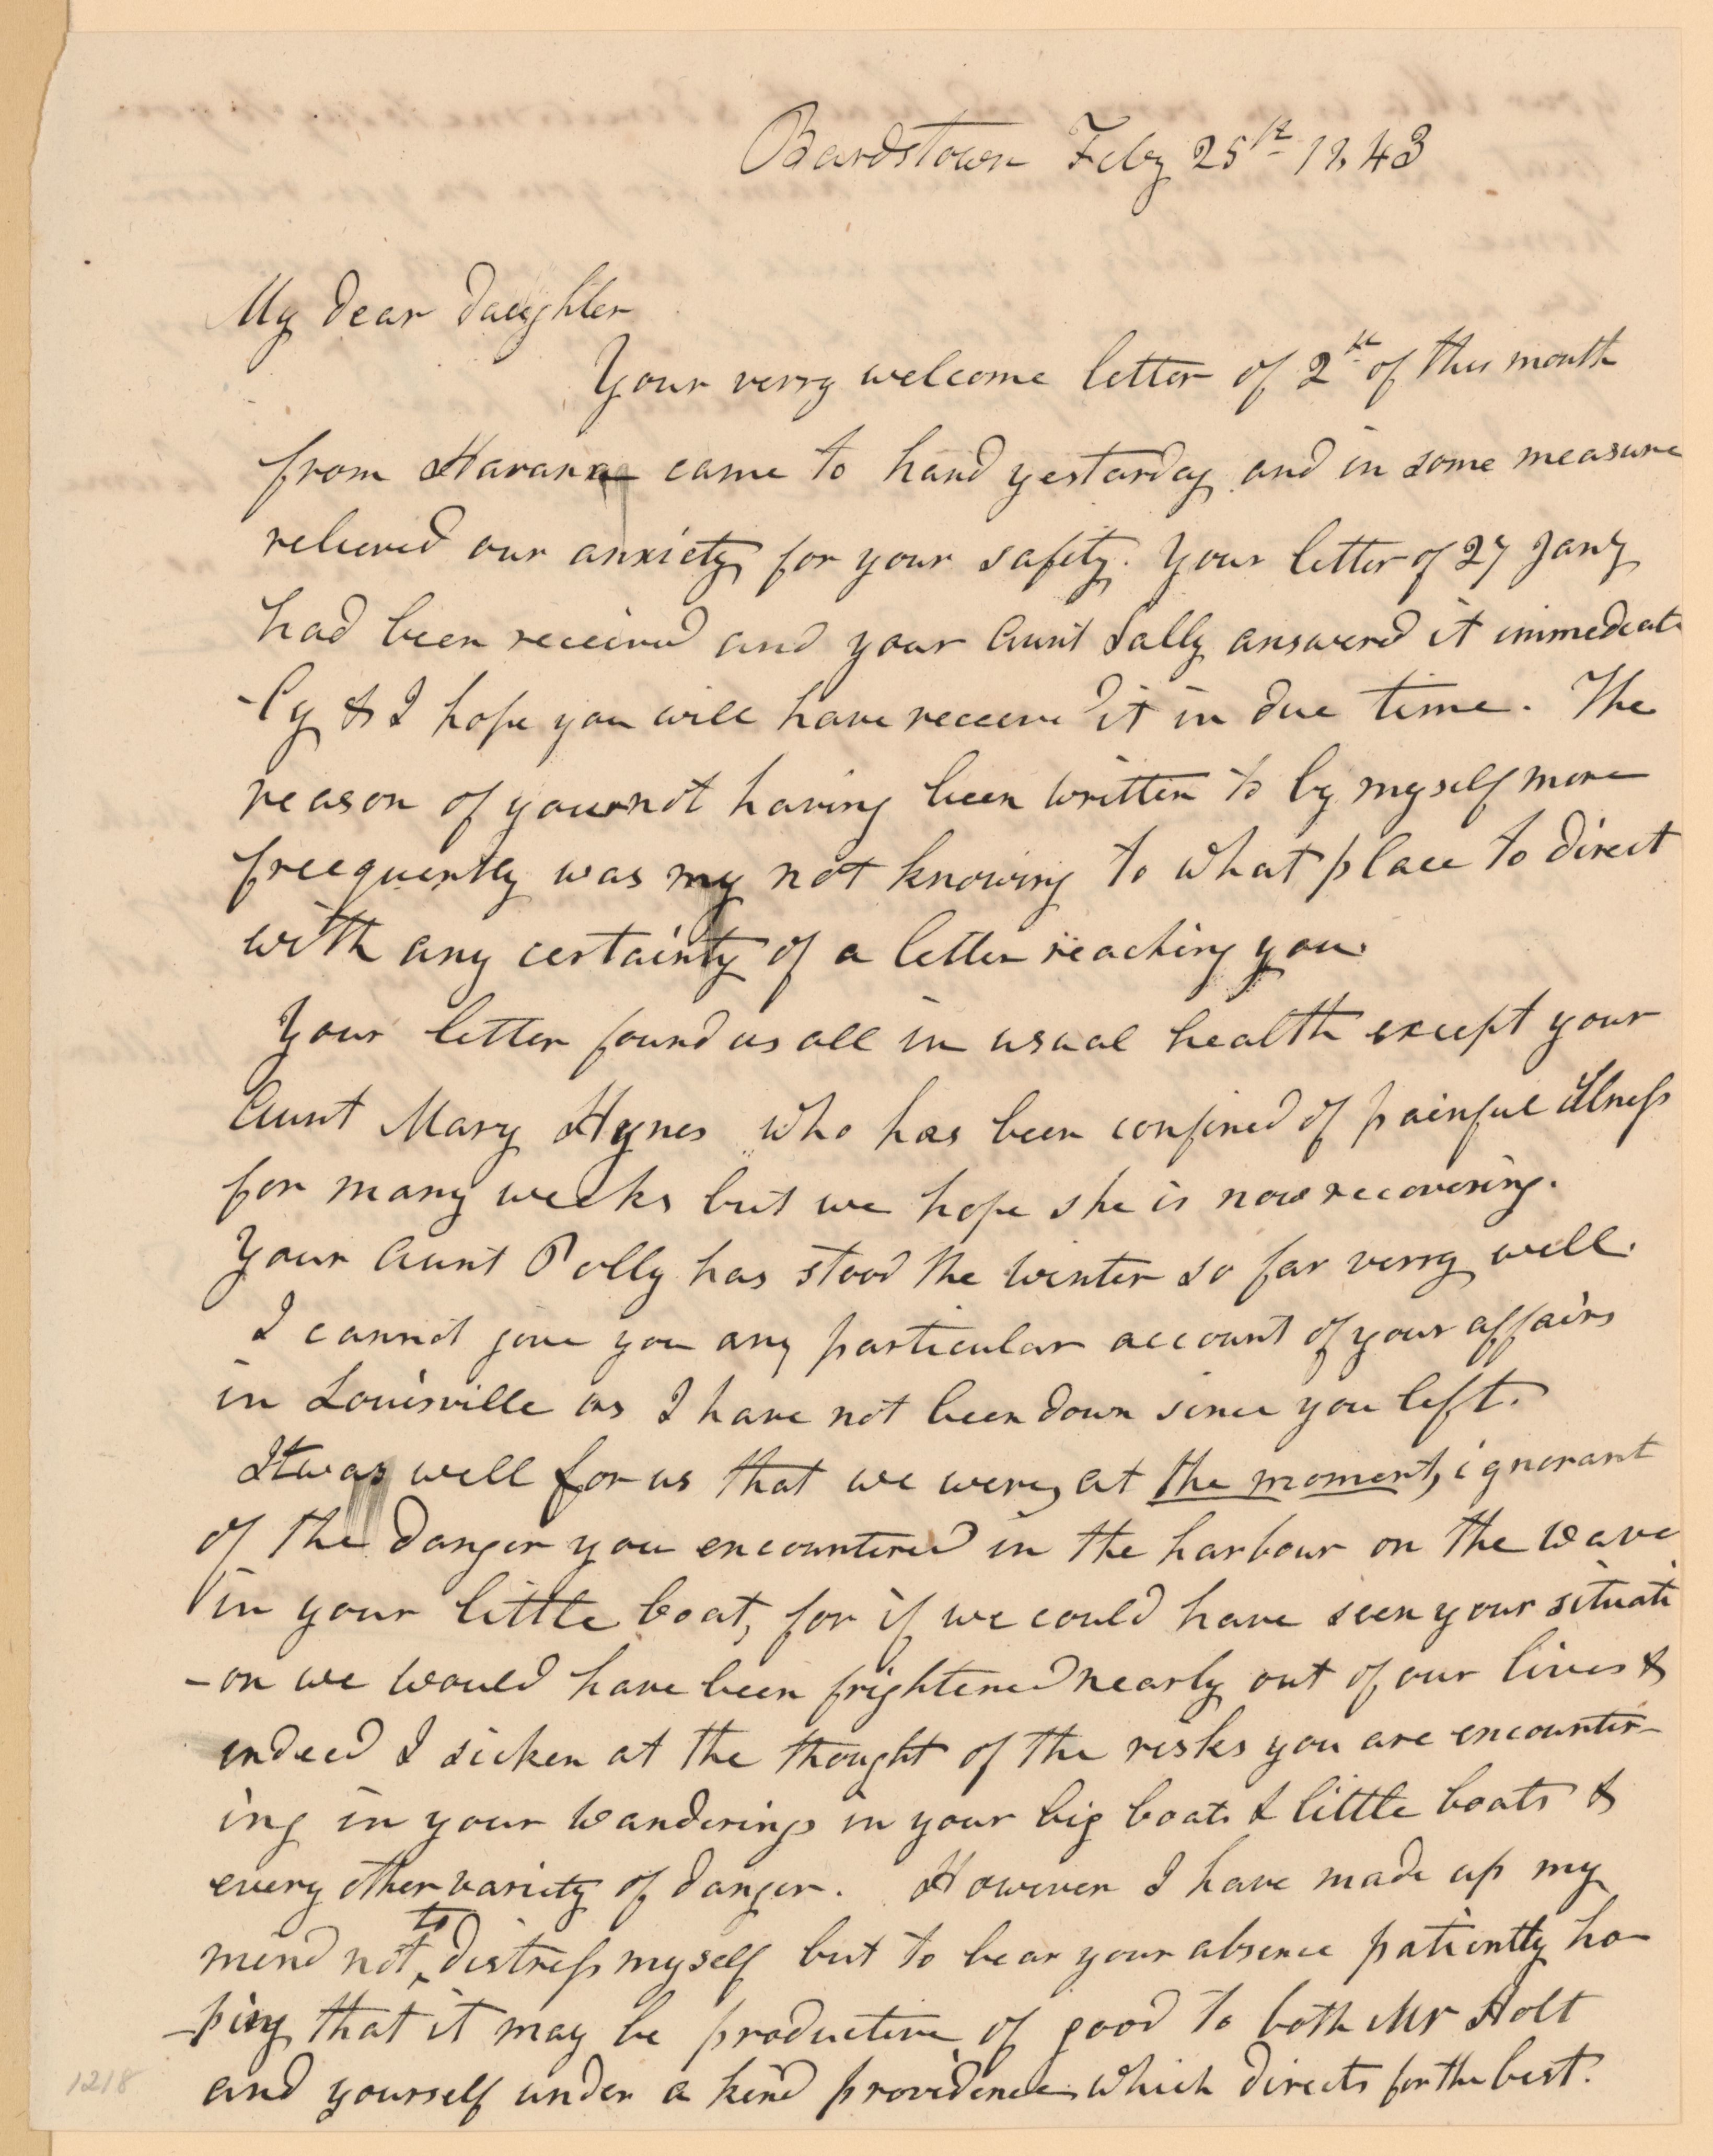 Bardstown Feby 25st 1843
My dear daughter
Your verry welcome letter of 2st of this month
from Havana came to hand yestarday and in some measure
relieved our anxiety for your safety. Your letter of 27 Jany
had been received and your aunt Sally answered it immediat
-ly & I hope you will have received it in due time. The
reason of your not having been written to by myself more
freequently was my not knowing to what place to direct
with any certainty of a letter reaching you.
Your letter found us all in usual health except your
Aunt Mary Hynes who has been confined of painful illness
for many weeks but we hope she is now recovering.
Your Aunt Polly has stood the winter so far verry well.
I cannot give you any particular account of your affairs
in Louisville as I have not been down since you left.
It was well for us that we were, at the moment, ignorant
of the danger you encountered in the harbour on the wave
in your little boat, for if we could have seen your situati
-on we would have been frightened nearly out of our lives &
indeed I sicken at the thought of the risks you are encounter-
ing in your wanderings in your big boats & little boats &
every other variety of danger. However I have made up my
mind not to distress myself but to bear your absence patiently ho-
-ping that it may be productive of good to both Mr Holt
and yourself under a kind providence which directs for the best.
1218